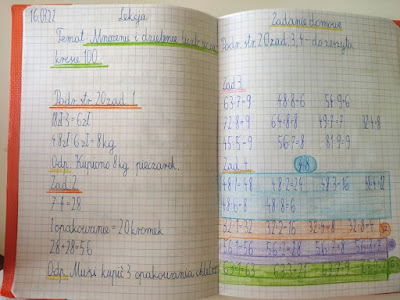 Lekcja
Temat: Mnożenie i dzielenie w
kresie 100.
Podr. str. 20 zad. 1
18zł:3=6zł
48zł:6zł=8kg
Odp. Kupiono 8kg pieczarek.
Zad. 2
7·4=28
1 opakowanie=20 kromek
28+28=56
Odp. Musi kupić 3 opakowania chleba.
Zadanie domowe
Podr. str. 20 zad. 3, 4 - do zeszytu
Zad. 3
63:7=9 48:8=6 54:9=6
72:8=9 64:8=8 49:7=7 32:4=8
45:5=9 56:7=8 81:9=9
Zad. 4
48
48·1=48 48:2=24 48:3=16
48:6=8 48:8=6
32:1=32 32:2=16 32:4=8 32:8=4
56:1=56 56:2=28 56:7=8
63:3=21